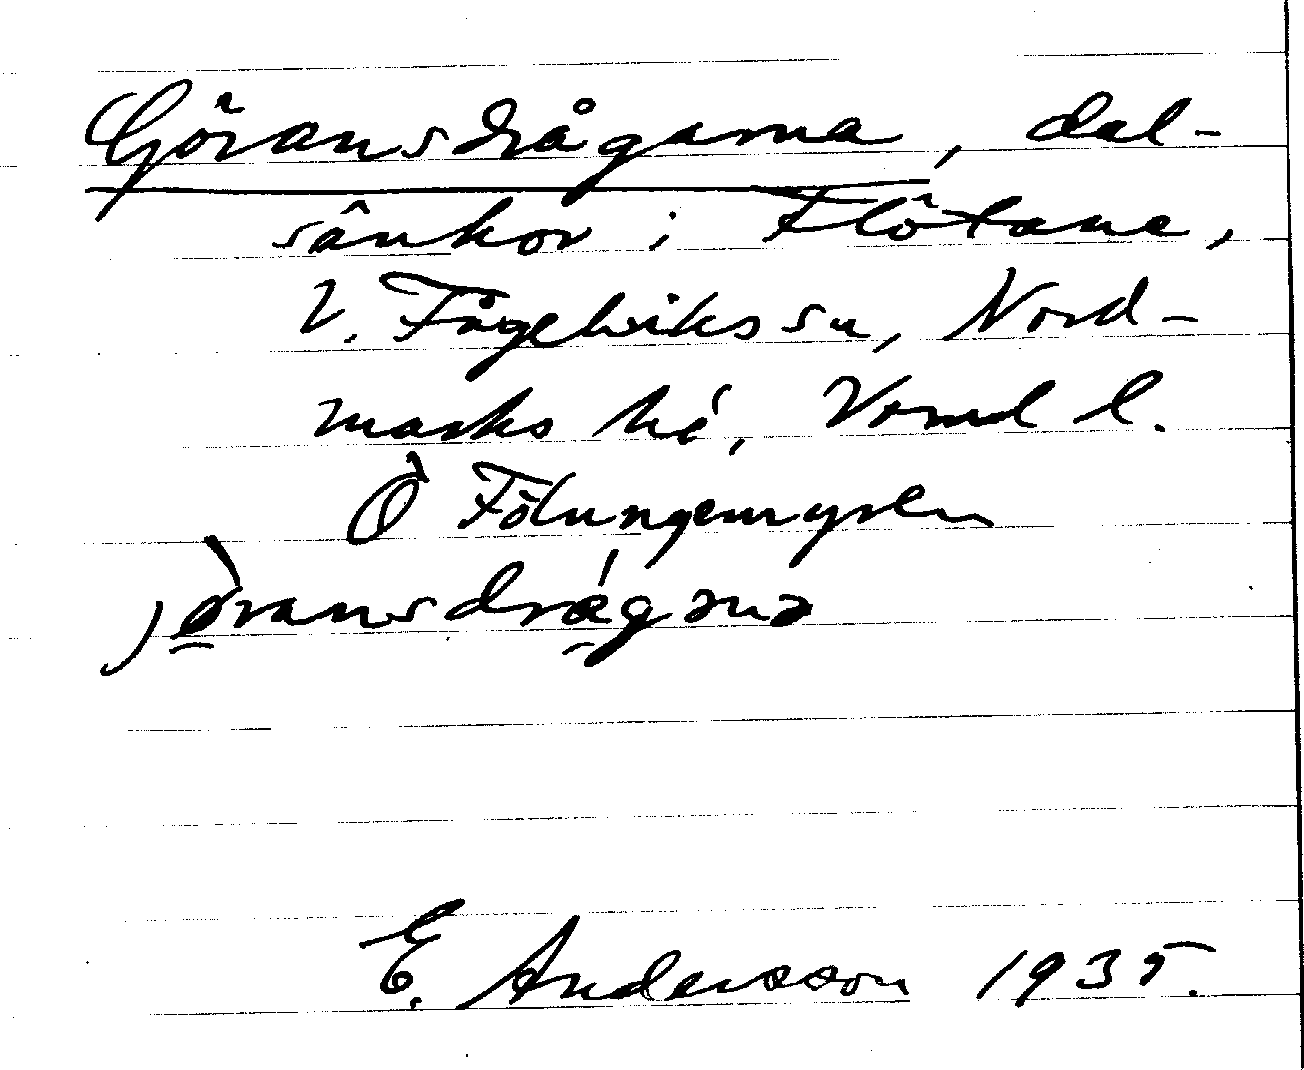 Göransdrågarna, dal-
sänkor i Flötane,
V. Fågelvikssn, Nord-
marks hd, Vrml l.
Ö Fölungemyren
jö̀ransdrágənə
E. Andersson 1935.